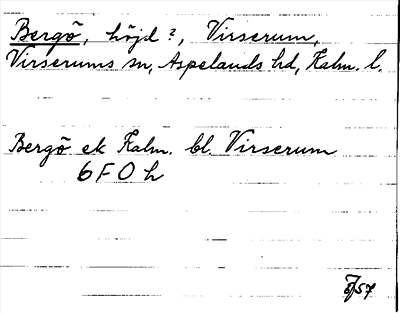 Bergö, höjd ?, Virserum,
Virserums sn, Aspelands hd, Kalm. l.
Bergö ek Kalm. bl. Virserum
6 F 0 h